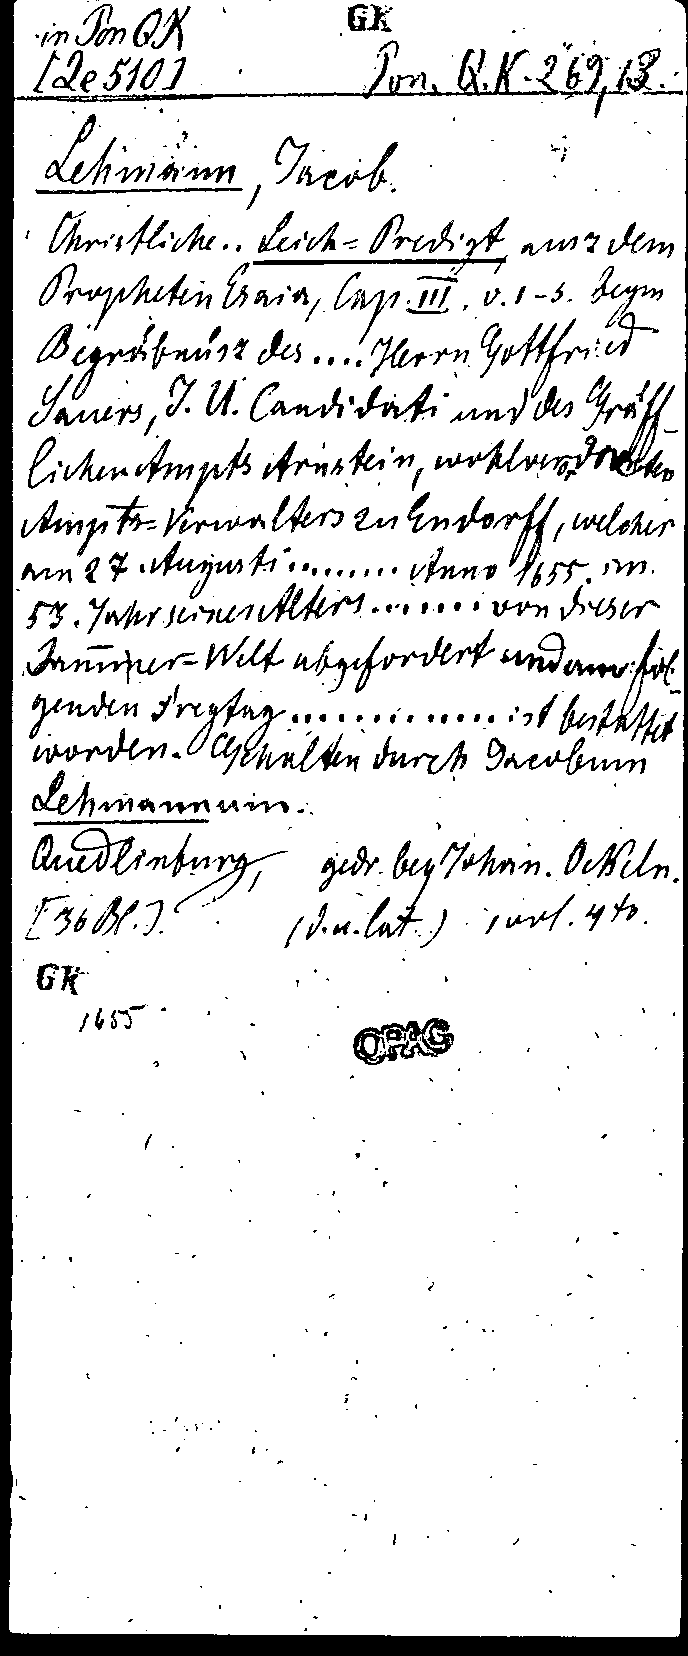 in Pon QK
GK
[Ze 510]
Pon. Q.K. 269, 13.
Lehmann, Jacob.
Christliche.. Leich=Predigt, ausz dem
Propheten Esaia, Cap. III. v. 1-3. beym
Begräbnüsz des .... Herrn Gottfried
Sauers, J. U. Candidati und des Gräff-
lichen Ampts Arnstein, wohlverordneten
Ampts=Verwalters zu Endorff, welcher
am 27. Augusti ........ Anno 1655. im.
53. Jahr seines Alters ....... von dieser
Jammer=Welt abgefordert und am fol-
genden Freytag .............. ist bestattet
worden. Gehalten durch Jacobum
Lehmannum.
Quedlinburg, gedr. bey Johan. Ockeln.
[36 Bl.]. (d.u.lat.) 4to.
GK
1655
OPAG